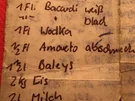 1 Fl. Bacardi weiß
blad
1 Fl Wodka
1 Fl Amareto abschmecken
1 Fl Baleys
2 kg Eis
2 l Milch